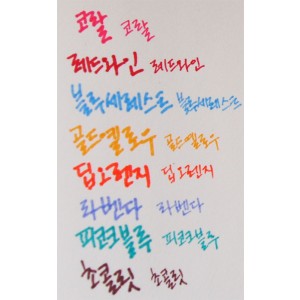 코랄 코랄
레드와인 레드와인
블루세레스트 블루세레스트
골드옐로우 골드옐로우
딥오렌지 딥오렌지
라벤다 라벤다
피코크블루 피코크블루
초콜릿 초콜릿